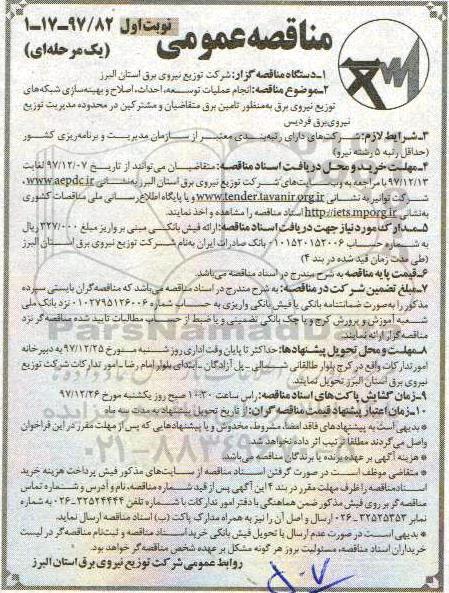 مناقصه عمومی
نوبت اول
۱-۱۷-۹۷/۸۲
(یک مرحله‌ای)
۱-دستگاه مناقصه گزار: شرکت توزیع نیروی برق استان البرز
۲-موضوع مناقصه: انجام عملیات توسعه، احداث، اصلاح و بهینه‌سازی شبکه‌های
توزیع نیروی برق به‌منظور تامین برق متقاضیان و مشترکین در محدوده مدیریت توزیع
نیروی‌برق فردیس
۳-شرایط لازم: شرکت‌های دارای رتبه‌بندی معتبر از سازمان مدیریت و برنامه‌ریزی کشور
(حداقل رتبه ۵ رشته نیرو)
۴-مهلت خرید و محل دریافت اسناد مناقصه: متقاضیان می‌توانند از تاریخ ۹۷/۱۲/۰۷ لغایت
۹۷/۱۲/۱۳ با مراجعه به وب‌سایت‌های شرکت توزیع نیروی برق استان البرز به‌نشانی www.aepdc.ir،
شرکت توانیر به نشانی www.tender.tavanir.org.ir و یا پایگاه اطلاع‌رسانی ملی مناقصات کشوری
به‌نشانی http://iets.mporg.ir اسناد مناقصه را مشاهده و اخذ نمایند.
۵-مدارک مورد نیاز جهت دریافت اسناد مناقصه: ارائه فیش بانکی مبنی بر واریز مبلغ ۳۲۷/۰۰۰ ریال
به شماره حساب ۰۱۰۱۵۲۰۱۵۲۰۰۶ بانک صادرات ایران به‌نام شرکت توزیع نیروی برق استان البرز
(طی مدت زمان قید شده در بند ۴)
۶-قیمت پایه مناقصه به شرح مندرج در اسناد مناقصه می‌باشد.
۷-مبلغ تضمین شرکت در مناقصه: به شرح مندرج در اسناد مناقصه می‌باشد که مناقصه‌گران بایستی سپرده
مذکور را به‌صورت ضمانتنامه بانکی یا فیش بانکی واریزی به حساب شماره ۰۱۰۲۷۹۵۱۲۶۰۰۶ نزد بانک ملی
شعبه آموزش و پرورش کرج و یا چک بانکی تضمینی و یا ضبط از حساب مطالبات تایید شده مناقصه‌گر نزد
مناقصه‌گزار ارائه نمایند.
۸-مهلت و محل تحویل پیشنهادها: حداکثر تا پایان وقت اداری روز شنبه مورخ ۹۷/۱۲/۲۵ به دبیرخانه
امور تدارکات واقع در کرج بلوار طالقانی شمالی - پل آزادگان - ابتدای بلوار امام رضا - امور تدارکات شرکت توزیع
نیروی برق استان البرز تحویل نمایند.
۹-زمان گشایش پاکت‌های اسناد مناقصه: راس ساعت ۱۰:۳۰ صبح روز یکشنبه مورخ ۹۷/۱۲/۲۶
۱۰-زمان اعتبار پیشنهاد قیمت مناقصه گران: از تاریخ تحویل پیشنهاد به مدت سه ماه
* بدیهی است به پیشنهادهای فاقد امضا، مشروط، مخدوش و یا پیشنهادهایی که پس از مهلت مقرر در این فراخوان
واصل می‌گردند مطلقا ترتیب اثر داده نخواهد شد.
* هزینه آگهی بر عهده برنده یا برندگان مناقصه می‌باشد.
* متقاضی موظف است در صورت گرفتن اسناد مناقصه از سایت‌های مذکور فیش پرداخت هزینه خرید
اسناد مناقصه را ظرف مهلت مقرر در بند ۴ این آگهی پس از قید شماره مناقصه، نام و آدرس و شماره تماس
مناقصه گر بر روی فیش مذکور ضمن هماهنگی با دفتر امور تدارکات با شماره تلفن ۳۲۵۲۴۴۴۴-۰۲۶ به شماره
نمابر ۳۲۵۲۵۳۵۳-۰۲۶ ارسال و اصل آن را نیز به همراه مدارک پاکت (ب) اسناد مناقصه ارسال نماید.
* بدیهی است در صورت عدم ارسال یا تحویل فیش بانکی خرید اسناد مناقصه و ثبت‌نام مناقصه‌گر در لیست
خریداران اسناد مناقصه، مسئولیت بروز هر گونه مشکل بر عهده شخص مناقصه‌گر خواهد بود.
روابط عمومی شرکت توزیع نیروی برق استان البرز